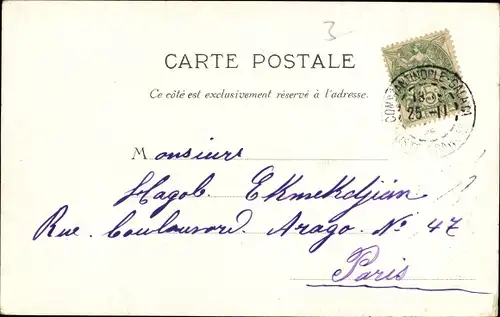 3
CARTE POSTALE
Ce côté est exclusivement réservé à l'adresse.
CONSTANTINOPLE-GALATA
25
Monsieur
Hagob Ekmekdjian
Rue Boulouvard Arago No 47
Paris